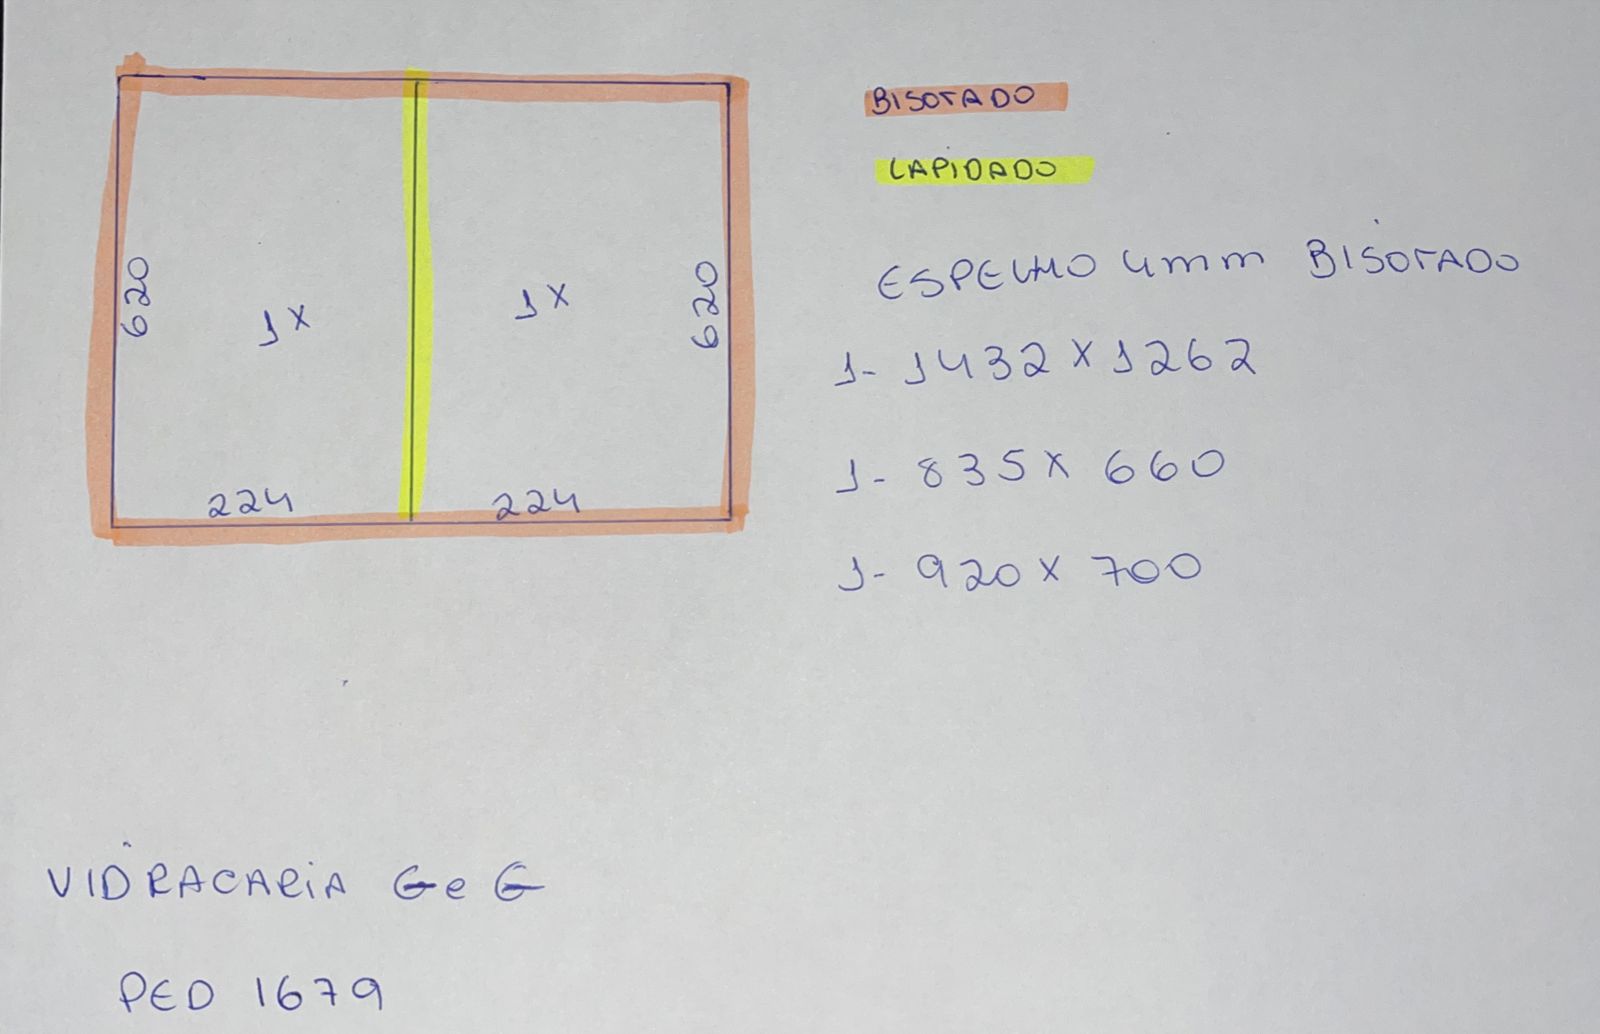 BISOTADO
LAPIDADO
620
1X
1X
620
224
224
ESPELHO 4mm BISOTADO
1- 1432 X 1262
1- 835 X 660
1- 920 X 700
VIDRACARIA G e G
PED 1679